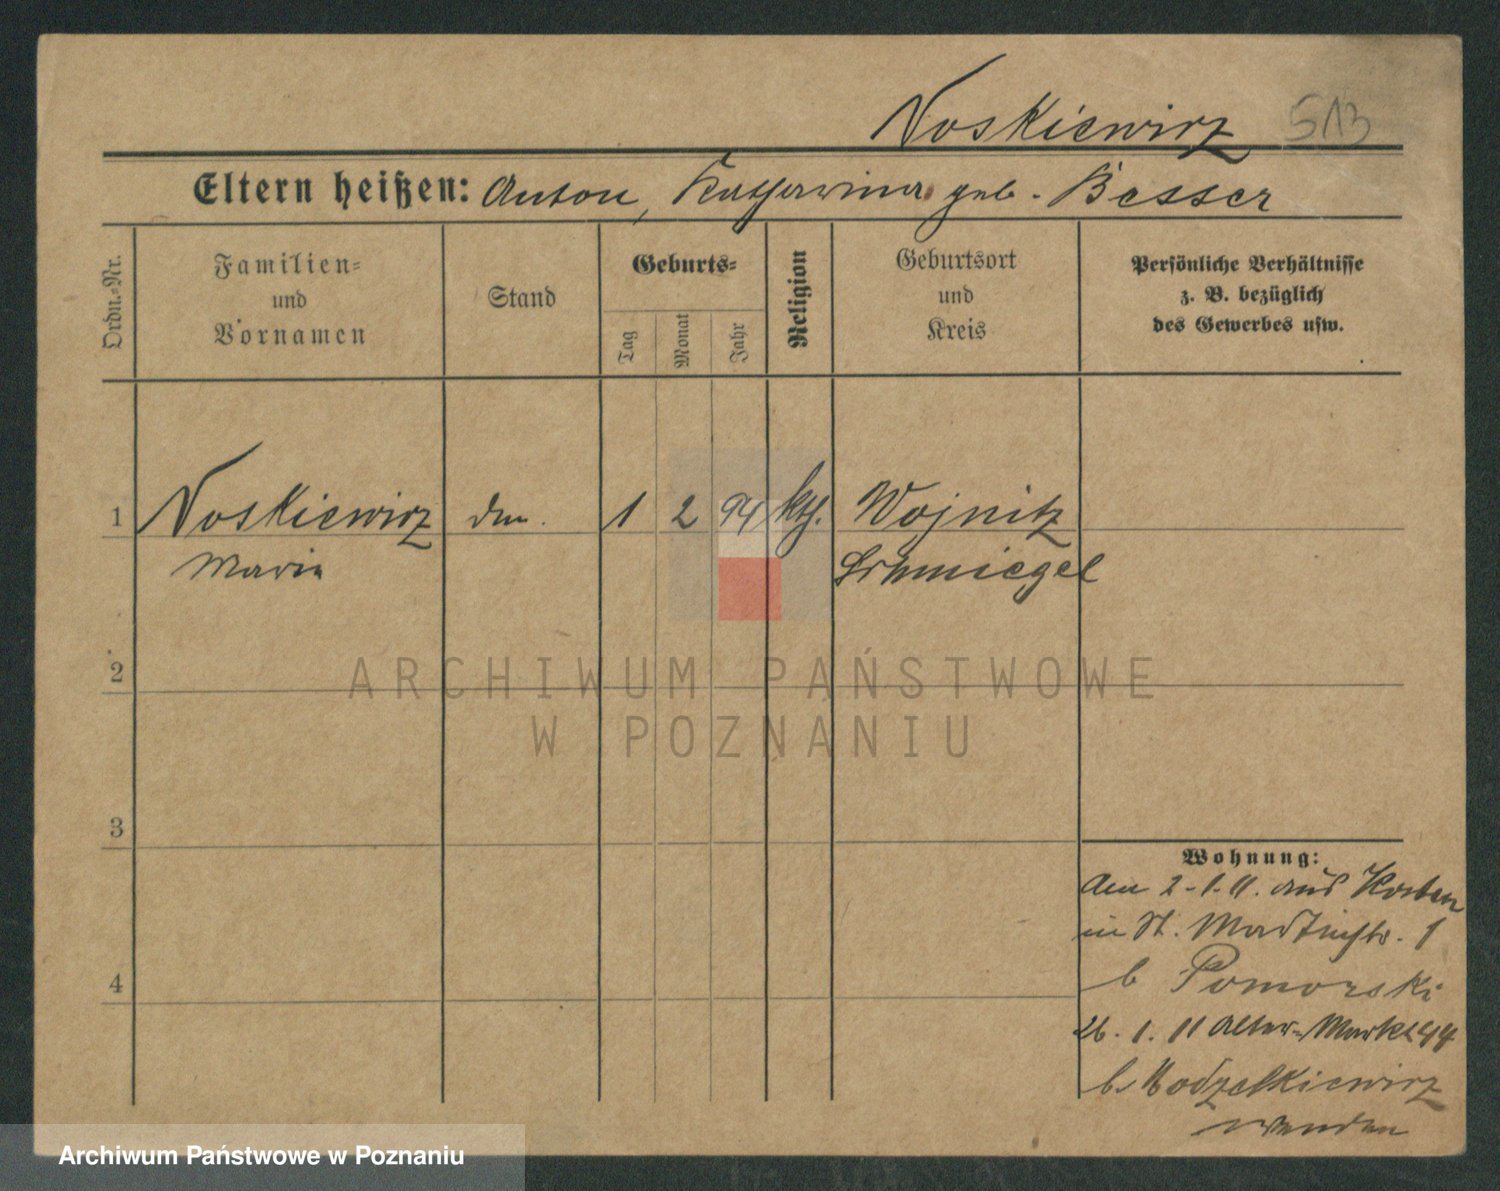 Noskiewicz 513
Eltern heißen: Anton, Katharina geb. Besser
Ordn.-Nr.
Familien-
und
Vornamen
Stand
Geburts-
Tag
Monat
Jahr
Religion
Geburtsort
und
Kreis
Persönliche Verhältnisse
z. B. bezüglich
des Gewerbes usw.
1 Noskiewicz 1 2 94 kth. Wojnitz
Maria Schmiegel
2
ARCHIWUM PAŃSTWOWE
W POZNANIU
3
4
Wohnung:
Am 2-1.11. aus Kosten
in St. Martinstr. 1
b Pomorski
26. 1. 11 Alter-Markt 44
b.
wenden
Archiwum Państwowe w Poznaniu